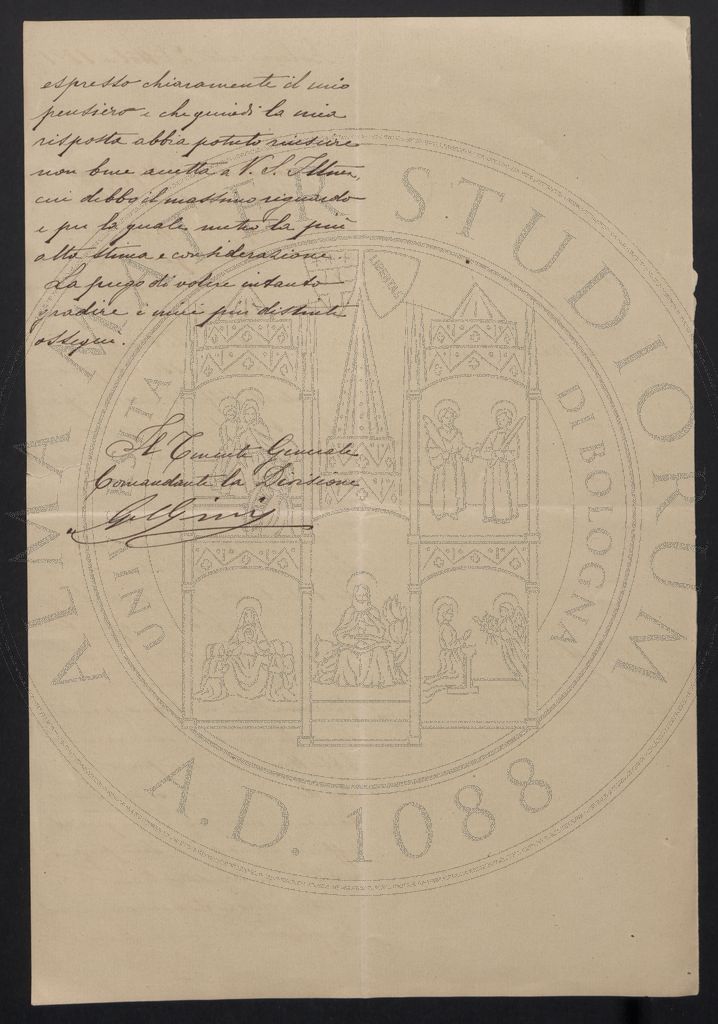 espresso chiaramente il mio
pensiero e che quindi la mia
risposta abbia potuto riuscire
non bene accetta a V. S. Illma,
cui debbo il massimo riguardo
e per la quale nutro la più
alta stima e considerazione.
La prego di volere intanto
gradire i miei più distinti
ossequi.
Il Tenente Generale
Comandante la Divisione
ALMA MATER STUDIORUM
UNIVERSITA
DI BOLOGNA
LIBERTAS
A.D. 1088